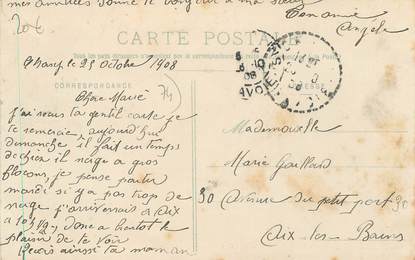 mes amitiés donne le bonjour à ma sœur
Ton amie
Angèle
20€
CARTE POSTALE
Tous les pays étrangers n'acceptent pas la correspondance au recto
le 25 Octobre 1908
CORRESPONDANCE
ADRESSE
74
Chère Marie
J'ai reçu ta gentil carte je
te remercie, aujourd'hui
dimanche il fait un temps
de chien il neige a gros
flocons, je pense partir
mardi si y a pas trop de
neige j'arriverais à Aix
a 10 donc a bientot le
plaisir de te voir
Reçois ainsi ta maman
Mademoiselle
Marie Gaillard
30 Avenue du petit port 30
Aix-les-Bains